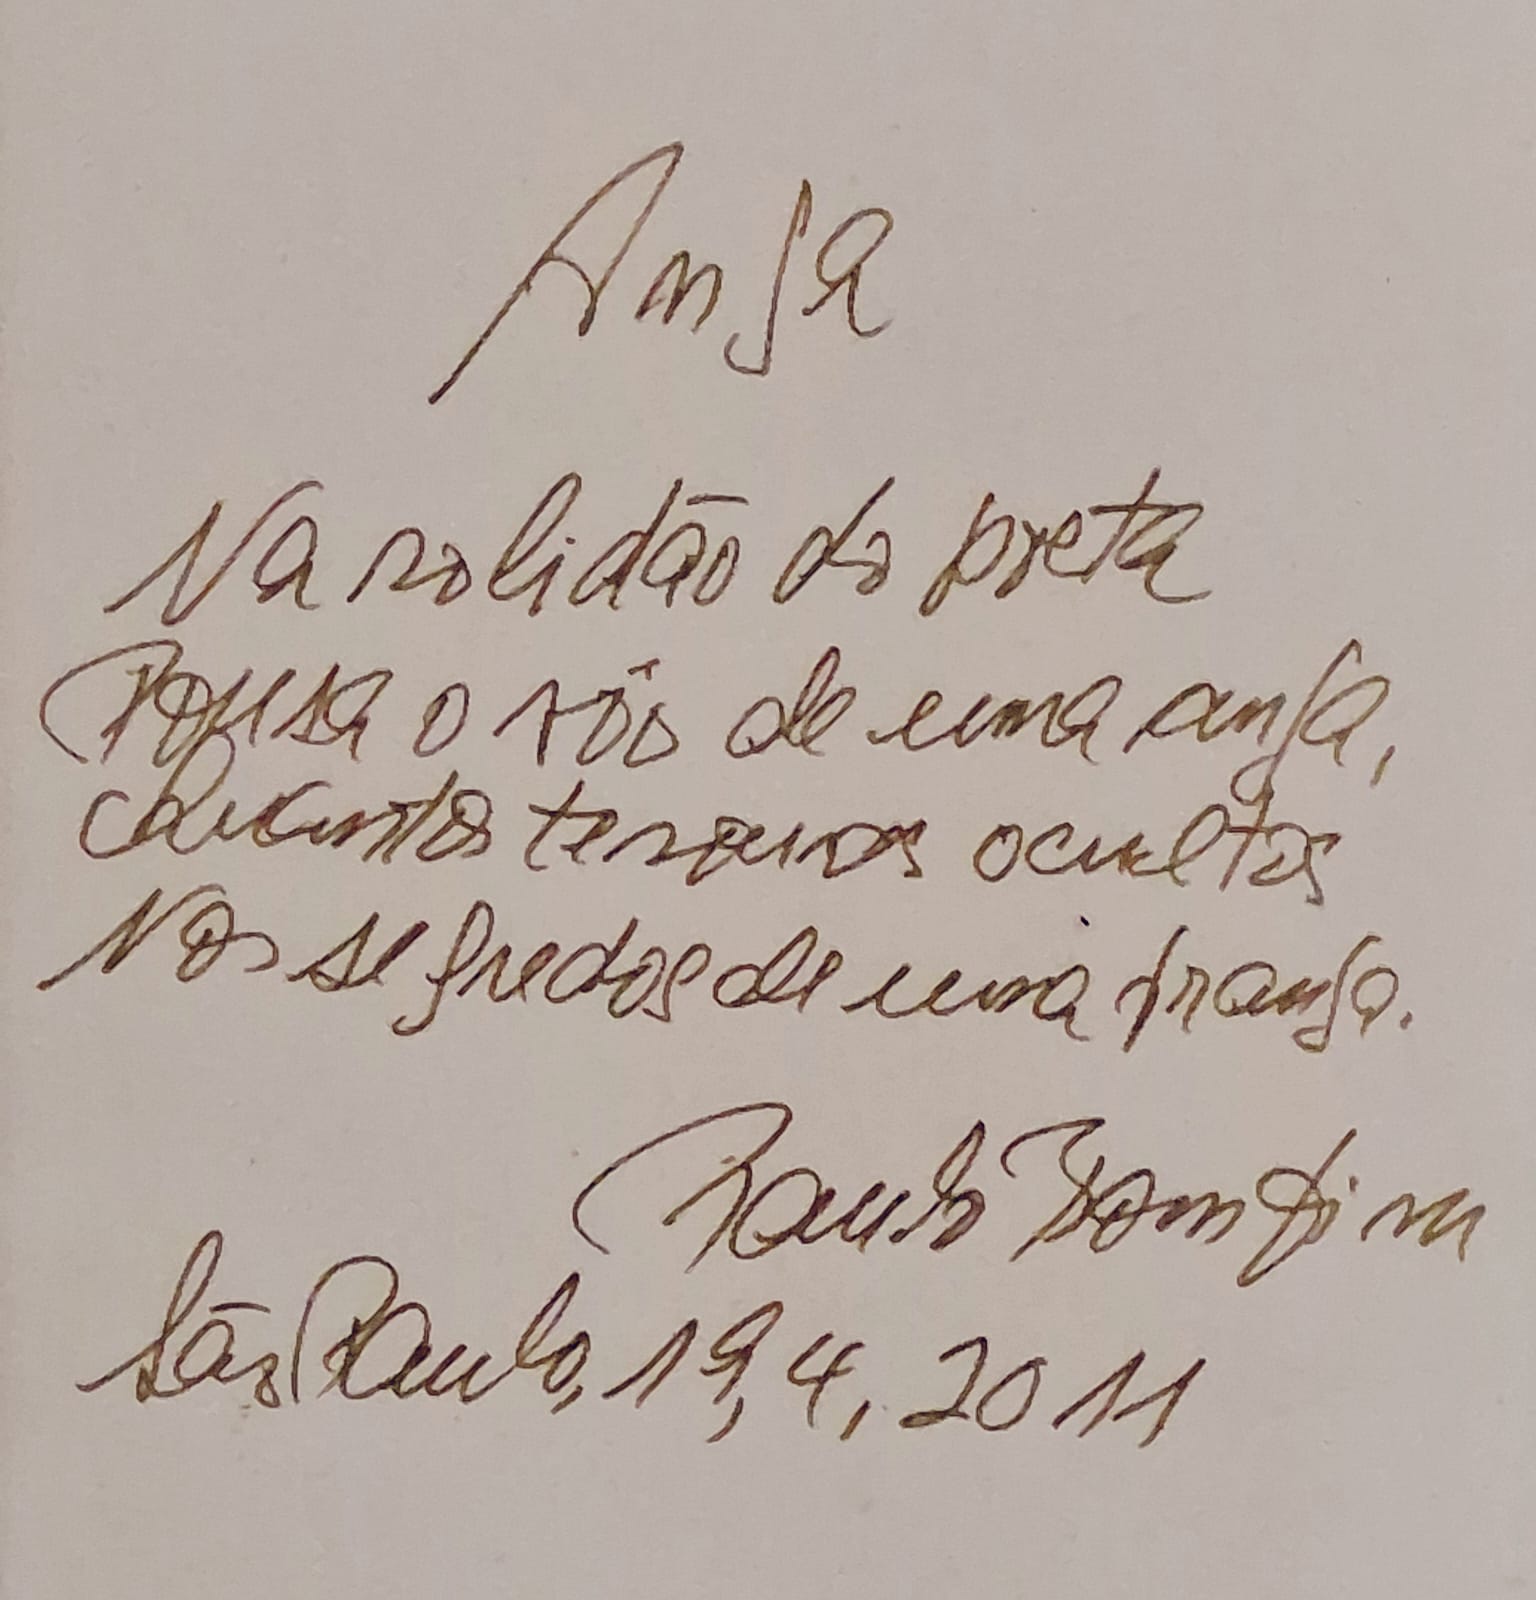 Anja
Na solidão do poeta
Pousa o vôo de uma anja,
Quantos tesouros ocultos
Nos segredos de uma franja.
Paulo Bomfim
São Paulo, 19, 4, 2011